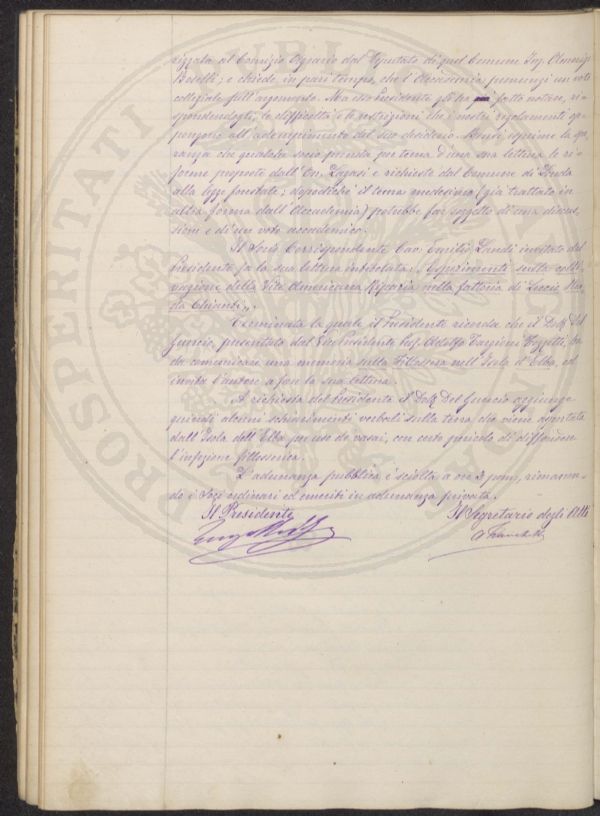 rizzata al Comizio Agrario dal Deputato di quel Comune Ing.
Borelli; e chiede in pari tempo, che l'Accademia pronunzi un voto
collegiale sull'argomento. Ma esso Presidente gli ha fatto notare, ri-
spondendogli, le difficoltà e le restrizioni che i nostri regolamenti op-
pongono all'adempimento del suo desiderio. Anzi esprime la spe-
ranza che qualche socio prenda per tema d'una sua lettura le ri-
forme proposte dall'On. e richieste dal Comune di
alla legge forestale; dopodichè il tema medesimo (già trattato in
altra forma dall'Accademia) potrebbe far soggetto di una discus-
sione e di un voto accademico.
Il Socio Corrispondente Cav. Emilio Landi invitato dal
Presidente fa la sua lettura intitolata: "Esperimenti sulla colti-
vazione della Vite Americana Riparia nella fattoria di
da Chianti".
Terminata la quale il Presidente ricorda che il Dott. Del
Guercio, presentato dal Vice Presidente Prof. Adolfo Targioni Tozzetti,
da comunicare una memoria sulla Fillossera nell'Isola d'Elba, ed
invita l'autore a fare la sua lettura.
A richiesta del Presidente il Dott. Del Guercio aggiunge
quindi alcuni schiarimenti verbali sulla terra che viene asportata
dall'Isola dell'Elba per uso de' vasai, con certo pericolo di diffusione
l'infezione fillosserica.
L'adunanza pubblica è sciolta a ore 3 pom., rimanen-
do i Soci ordinari ed emeriti in adunanza privata.
Il Presidente
Il Segretario degli Atti